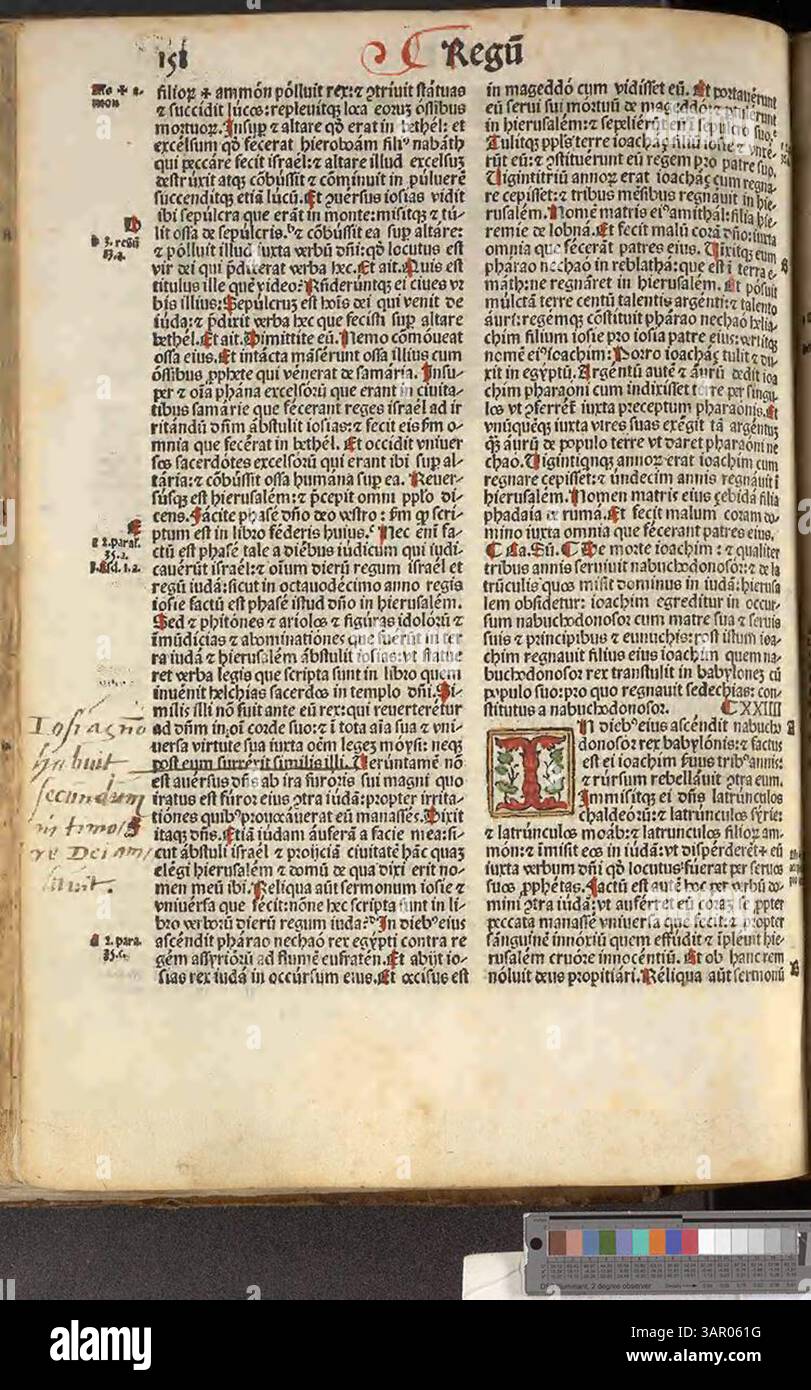 158
Regū
filioꝝ ammón pólluit rex: ⁊ ꝯtriuit státuas
⁊ succidit lúcos: repleuitqꝫ loca eorum óssibus
mortuoꝝ. Insuꝑ ⁊ altare qđ erat in bethél: et
excélsum qđ fecerat hieroboám filiꝰ nabáth
qui peccáre fecit israél: ⁊ altare illud excelsuꝫ
destrúxit atqꝫ cōbússit ⁊ cōminuit in púluerē
succenditqꝫ etiā lúcū. Et ꝯuérsus iosias vidit
ibi sepúlcra que erāt in monte: misitqꝫ ⁊ tú-
lit ossa de sepúlcris. ⁊ cōbússit ea suꝑ altáre:
⁊ pólluit illud iuxta verbū dn̄i: qđ locutus est
vir dei qui p̄dixerat verba hec. Et ait. Quis est
titulus ille quē video? Rn̄derúntqꝫ ei ciues vr
bis illius: Sepúlcruꝫ est hoīs dei qui venit de
iúda: ⁊ p̄dixit verba hec que fecisti suꝑ altare
bethél. Et ait. Dimittite eū. Nemo cōmóueat
ossa eius. Et intácta māsérunt ossa illius cum
óssibus ꝓphete qui vénerat de samaria. Insu-
per ⁊ oīa phana excelsórū que erant in ciuita-
tibus samárie que fécerant reges israél ad ir
ritándū dn̄m ábstulit iosias: ⁊ fecit eis ẜm o-
mnia que fecérat in bethél. Et occidit vniuer
sos sacerdótes excelsórū qui erant ibi suꝑ al-
tária: ⁊ cōbússit ossa humana suꝑ ea. Reuer-
súsqꝫ est hierusalém: ⁊ p̄cepit omni pplo di-
cens. Fácite phasé dn̄o deo vestro: ẜm ꝙ scri-
ptum est in libro féderis huius. Nec eni fa-
ctū est phasé tale a diébus iúdicum qui iudi-
cauérūt israél: ⁊ oīum diérū regum israél et
regū iudá: sicut in octauodécimo anno regis
iosie factū est phasé istud dn̄o in hierusalém.
Sed ⁊ phitónes ⁊ ariolos ⁊ figúras idolórū ⁊
īmūdícias ⁊ abominatiónes que fuérūt in ter
ra iudá ⁊ hierusalém ábstulit iosias: vt statue
ret verba legis que scripta sunt in libro quem
inuénit helchias sacerdos in templo dn̄i. Si-
milis illi nō fuit ante eū rex: qui reuerterétur
ad dn̄m in oī corde suo: ⁊ ī tota aīa sua ⁊ vni-
uersa virtute sua iuxta oēm legeꝫ móysi: neqꝫ
post eum surréxit similis illi. Uerúntamē nō
est auérsus dn̄s ab ira furóris sui magni quo
iratus est furor eius ꝯtra iúdā: propter irrita-
tiónes quibꝰ ꝓuocáuerat eū manásses. Dixit
itaqꝫ dn̄s. Etiā iudam áuferā a facie mea: si-
cut ábstuli israél ⁊ proijciā ciuitatē hāc quaꝫ
elégi hierusalém ⁊ domū de qua dixi erit no-
men meū ibi. Reliqua aūt sermonum iosie ⁊
vniuérsa que fecit: nōne hec scripta sunt in li-
bro verbórū dierū regum iudá? In diebꝰ eius
ascéndit phárao nechaó rex egýpti contra re
gém assyriórū ad flumē eufratén. Et abijt io-
sias rex iudá in occúrsum eius. Et occisus est
3. regū
13.
2. paral.
35.
3. Esd. 1. a.
Iosias
habuit
secundum
timore
Dei
2. para.
35. c.
in mageddó cum vidisset eū. Et portauérunt
eū serui sui mórtuū de mageddó: ⁊
in hierusalém: ⁊ sepeliérūt eū ī sepulcro suo.
Tulitqꝫ ppls terre ioacháꝫ filiū iosie ⁊ vnxe-
rūt eū: ⁊ ꝯstituérunt eū regem pro patre suo.
Uigintitriū annoꝝ erat ioacháꝫ cum regna-
re cepisset: ⁊ tribus mēsibus regnauit in hie-
rusalém. Nomē matris eiꝰ amithál: filia hie-
remie de lobná. Et fecit malū corā dn̄o: iuxta
omnia que fécerāt patres eius. Uinxitqꝫ eum
phárao nechaó in reblathá: que est ī terra e-
máth: ne regnáret in hierusalém. Et pósuit
múlctā terre centū talentis argénti: ⁊ talento
áuri: regémqꝫ cōstituit phárao nechaó helia-
chim filium iosie pro iosia patre eius: vertitqꝫ
nomē eiꝰ ioachim: Porro ioacháꝫ tulit ⁊ du-
xit in egýptū. Argéntū autē ⁊ áurū dedit ioa
chim pharaóni cum indixisset terre per singu
los vt ꝯferrét iuxta preceptum pharaónis. Et
vnūquēqꝫ iuxta vires suas exégit tā argentuꝫ
qꝫ áurū de populo terre vt daret pharaóni ne
chaó. Uigintiqnqꝫ annoꝝ erat ioachim cum
regnare cepisset: ⁊ úndecim annis regnáuit ī
hierusalém. Nomen matris eius zebidá filia
phadaia de rumá. Et fecit malum coram do-
mino iuxta omnia que fécerant patres eius.
De morte ioachim: ⁊ qualiter
tribus annis seruiuit nabuchodonosor: ⁊ de la
trūculis quos misit dominus in iudā: hierusa
lem obsidetur: ioachim egreditur in occur-
sum nabuchodonosor cum matre sua ⁊ seruis
suis ⁊ principibus ⁊ eunuchis: post illum ioa-
chim regnauit filius eius ioachim quem na-
buchodonosor rex transtulit in babylonez cū
populo suo: pro quo regnauit sedechias: con-
stitutus a nabuchodonosor. XXIIII
IN diebꝰ eius ascéndit nabucho
donosor rex babylónis: ⁊ factus
est ei ioachim fuus tribꝰ annis:
⁊ rúrsum rebelláuit ꝯtra eum.
Immisitqꝫ ei dn̄s latrúnculos
chaldeórū: ⁊ latrúnculos sýrie:
⁊ latrúnculos moáb: ⁊ latrunculos filioꝝ am-
món: ⁊ īmisit eos in iudā: vt dispérderēt eū
iuxta verbum dn̄i qđ locutus fúerat per seruos
suos ꝓphétas. Factū est autē hoc per verbū do-
mini ꝯtra iúdā: vt auferret eū coraꝫ se ꝓpter
peccata manassé vniuersa que fecit: ⁊ propter
sánguinē innóxiū quem effúdit ⁊ īpleuit hie-
rusalém cruóre innocéntiū. Et ob hanc rem
nóluit deus propitiári. Réliqua aūt sermonū